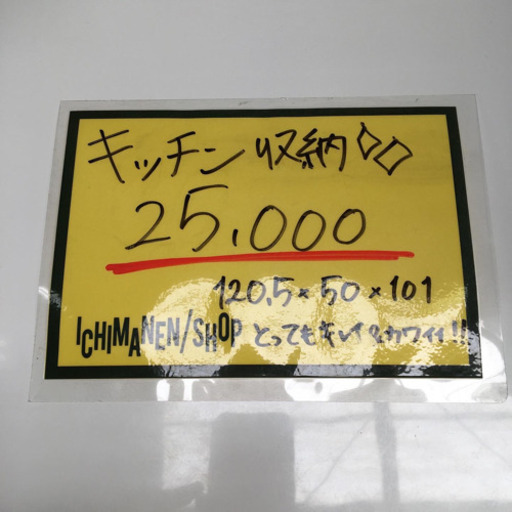 キッチン収納
25,000
120.5×50×101
ICHIMANEN/SHOP とってもキレイ&カワイイ!!